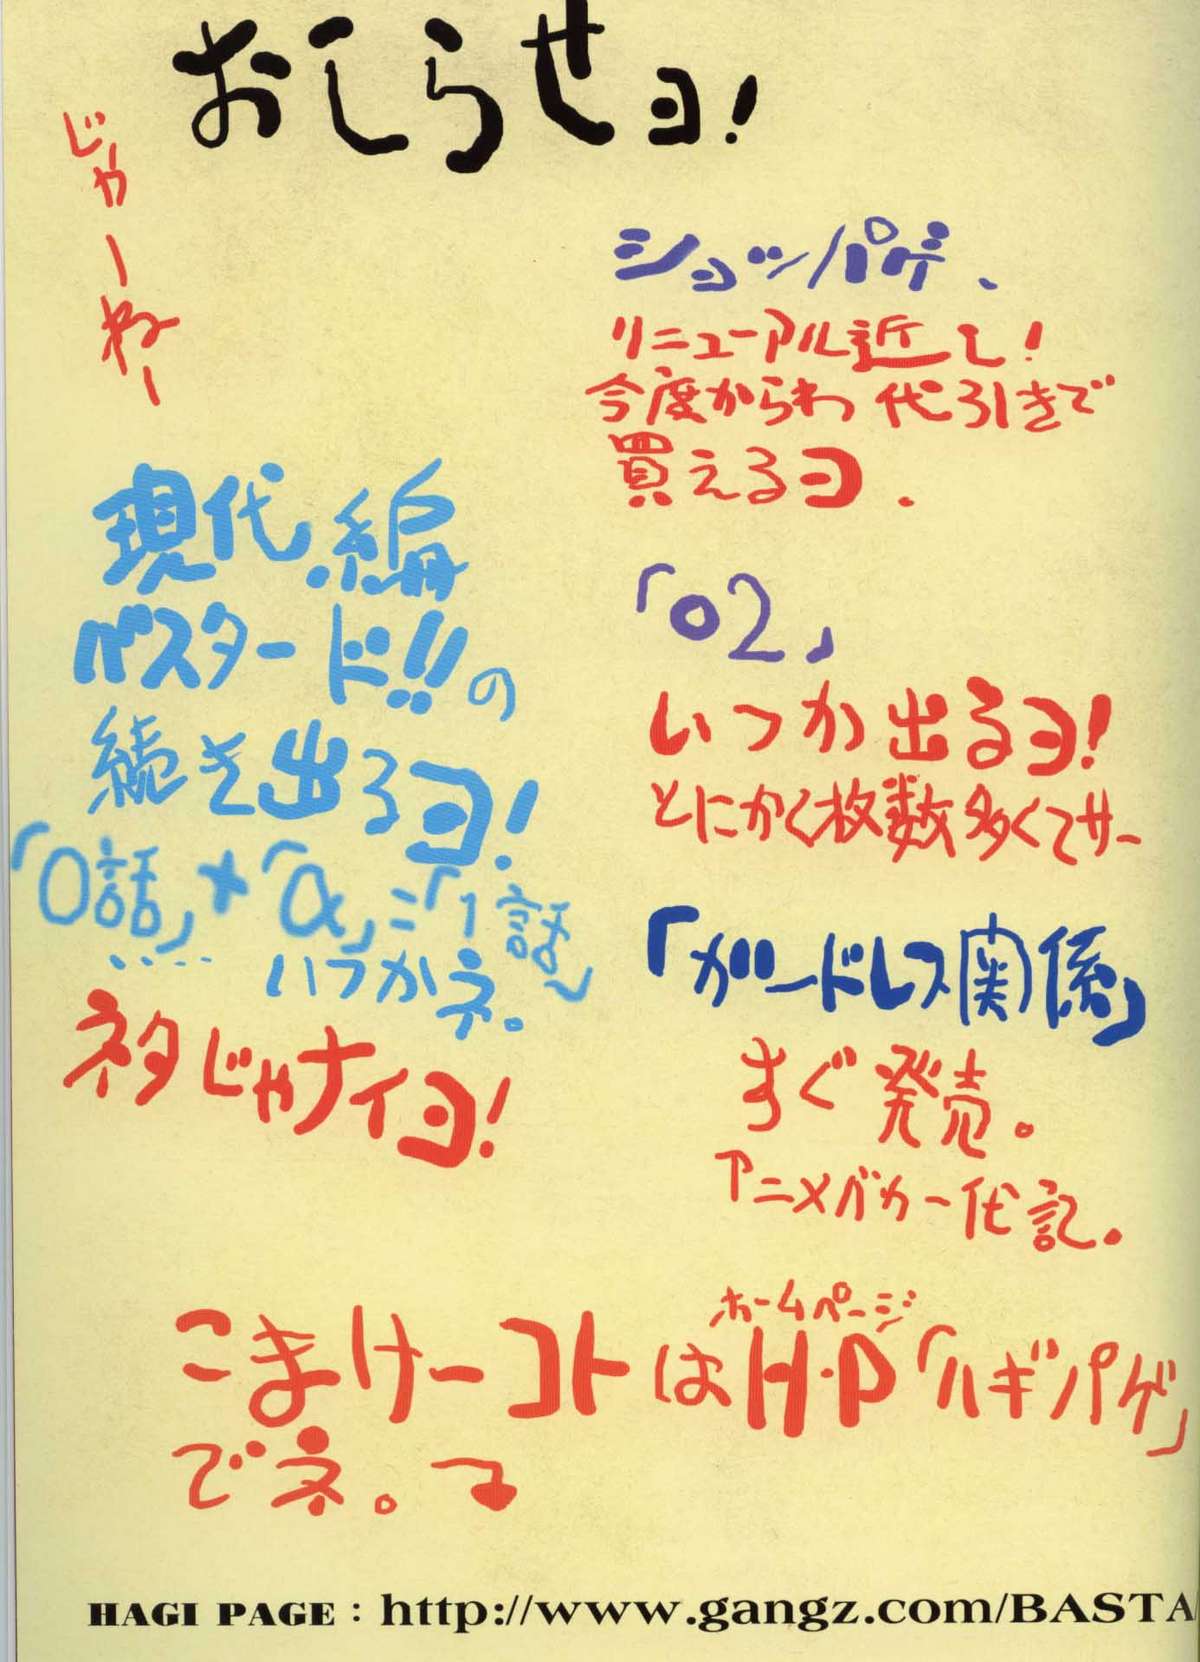 おしらせヨ!
ショッパゲ、
リニューアル近し!
今度からわ 代引きで
買えるヨ.
「02」
いつか出るヨ!
とにかく枚数多くてサー
「ガードレス関係」
すぐ発売。
アニメバカ一代記.
現代編
バスタード!!の
続き出るヨ!
「0話」+「α」=「1話」
……いつかネ。
ネタじゃナイヨ!
こまけーコトはH.P「ハギパゲ」
ホームページ
でネ。
じゃーねー
HAGI PAGE : http://www.gangz.com/BASTA